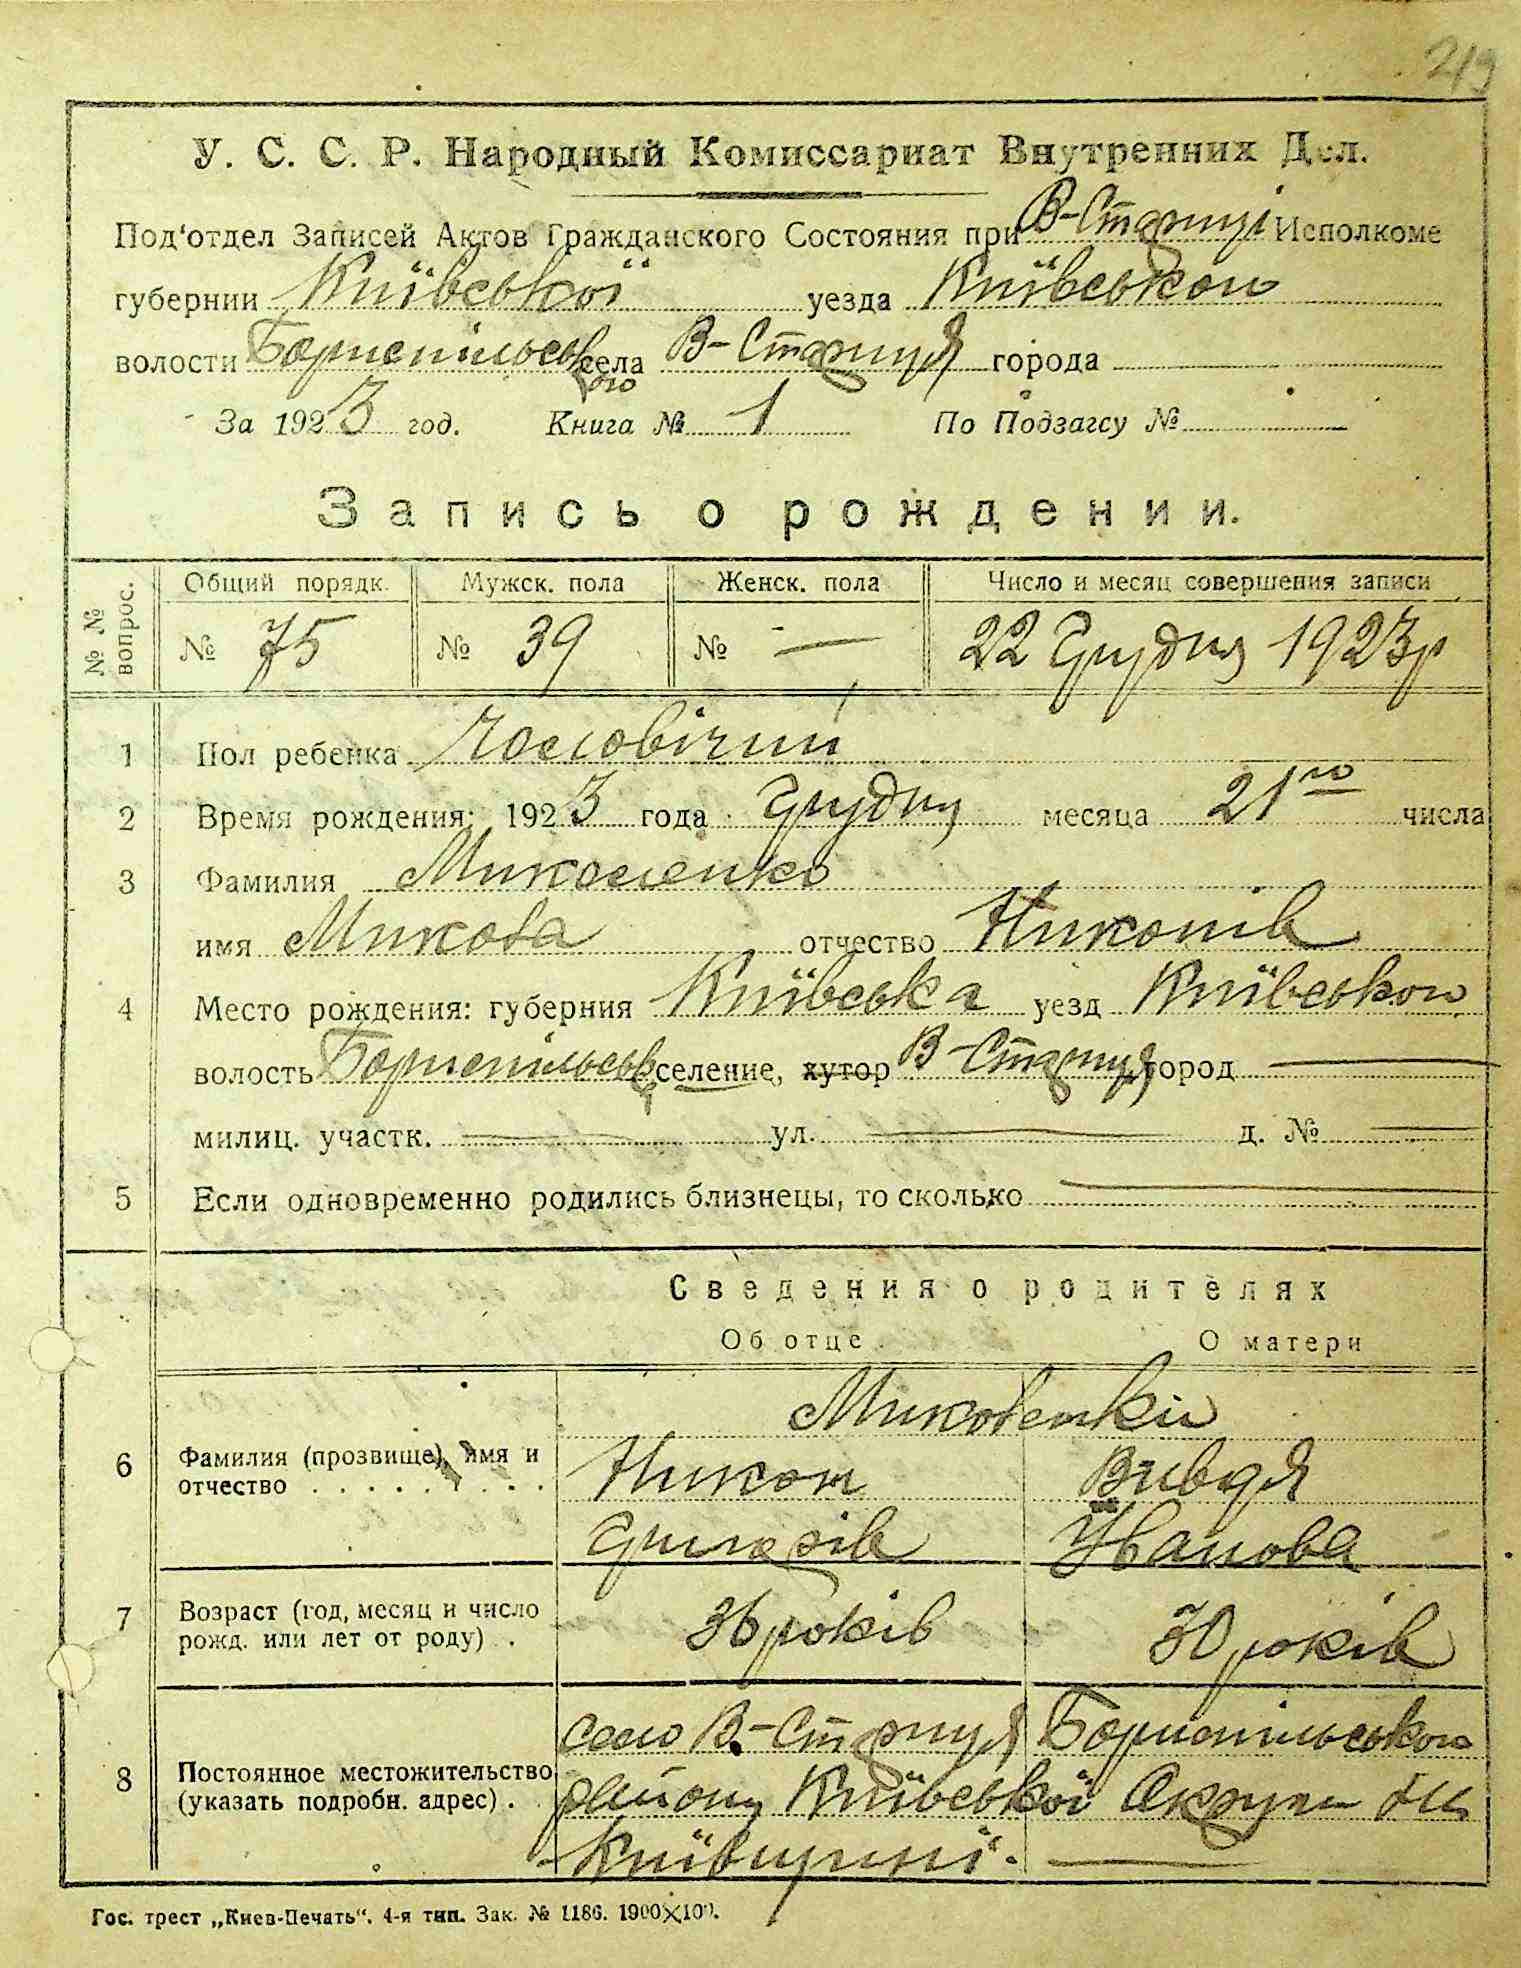 213
У. С. С. Р. Народный Комиссариат Внутренних Дел.
Под'отдел Записей Актов Гражданского Состояния при В-Стариці Исполкоме
губернии Київської уезда Київського
волости Бориспільського села В-Стариця города
За 1923 год. Книга № 1 По Подзагсу №
Запись о рождении.
№ № вопрос. Общий порядк. Мужск. пола Женск. пола Число и месяц совершения записи
№ 75 № 39 № — 22 Грудня 1923 р
1 Пол ребенка Чоловічий
2 Время рождения: 1923 года Грудня месяца 21го числа
3 Фамилия Миколенко
имя Микола отчество Никонів
4 Место рождения: губерния Київська уезд Київського
волость Бориспільськ селение, хутор В-Стариця город —
милиц. участк. — ул. — д. № —
5 Если одновременно родились близнецы, то сколько —
Сведения о родителях
Об отце О матери
Миколенки
6 Фамилия (прозвище), имя и отчество . . . . . . . . Никон Вивдя
Григорів Иванова
7 Возраст (год, месяц и число рожд. или лет от роду) . 36 років 30 років
село В-Стариця Бориспільського
8 Постоянное местожительство (указать подробн. адрес) . району Київської Округи на
Київщині. —
Гос. трест „Киев-Печать“. 4-я тип. Зак. № 1186. 1900×100.